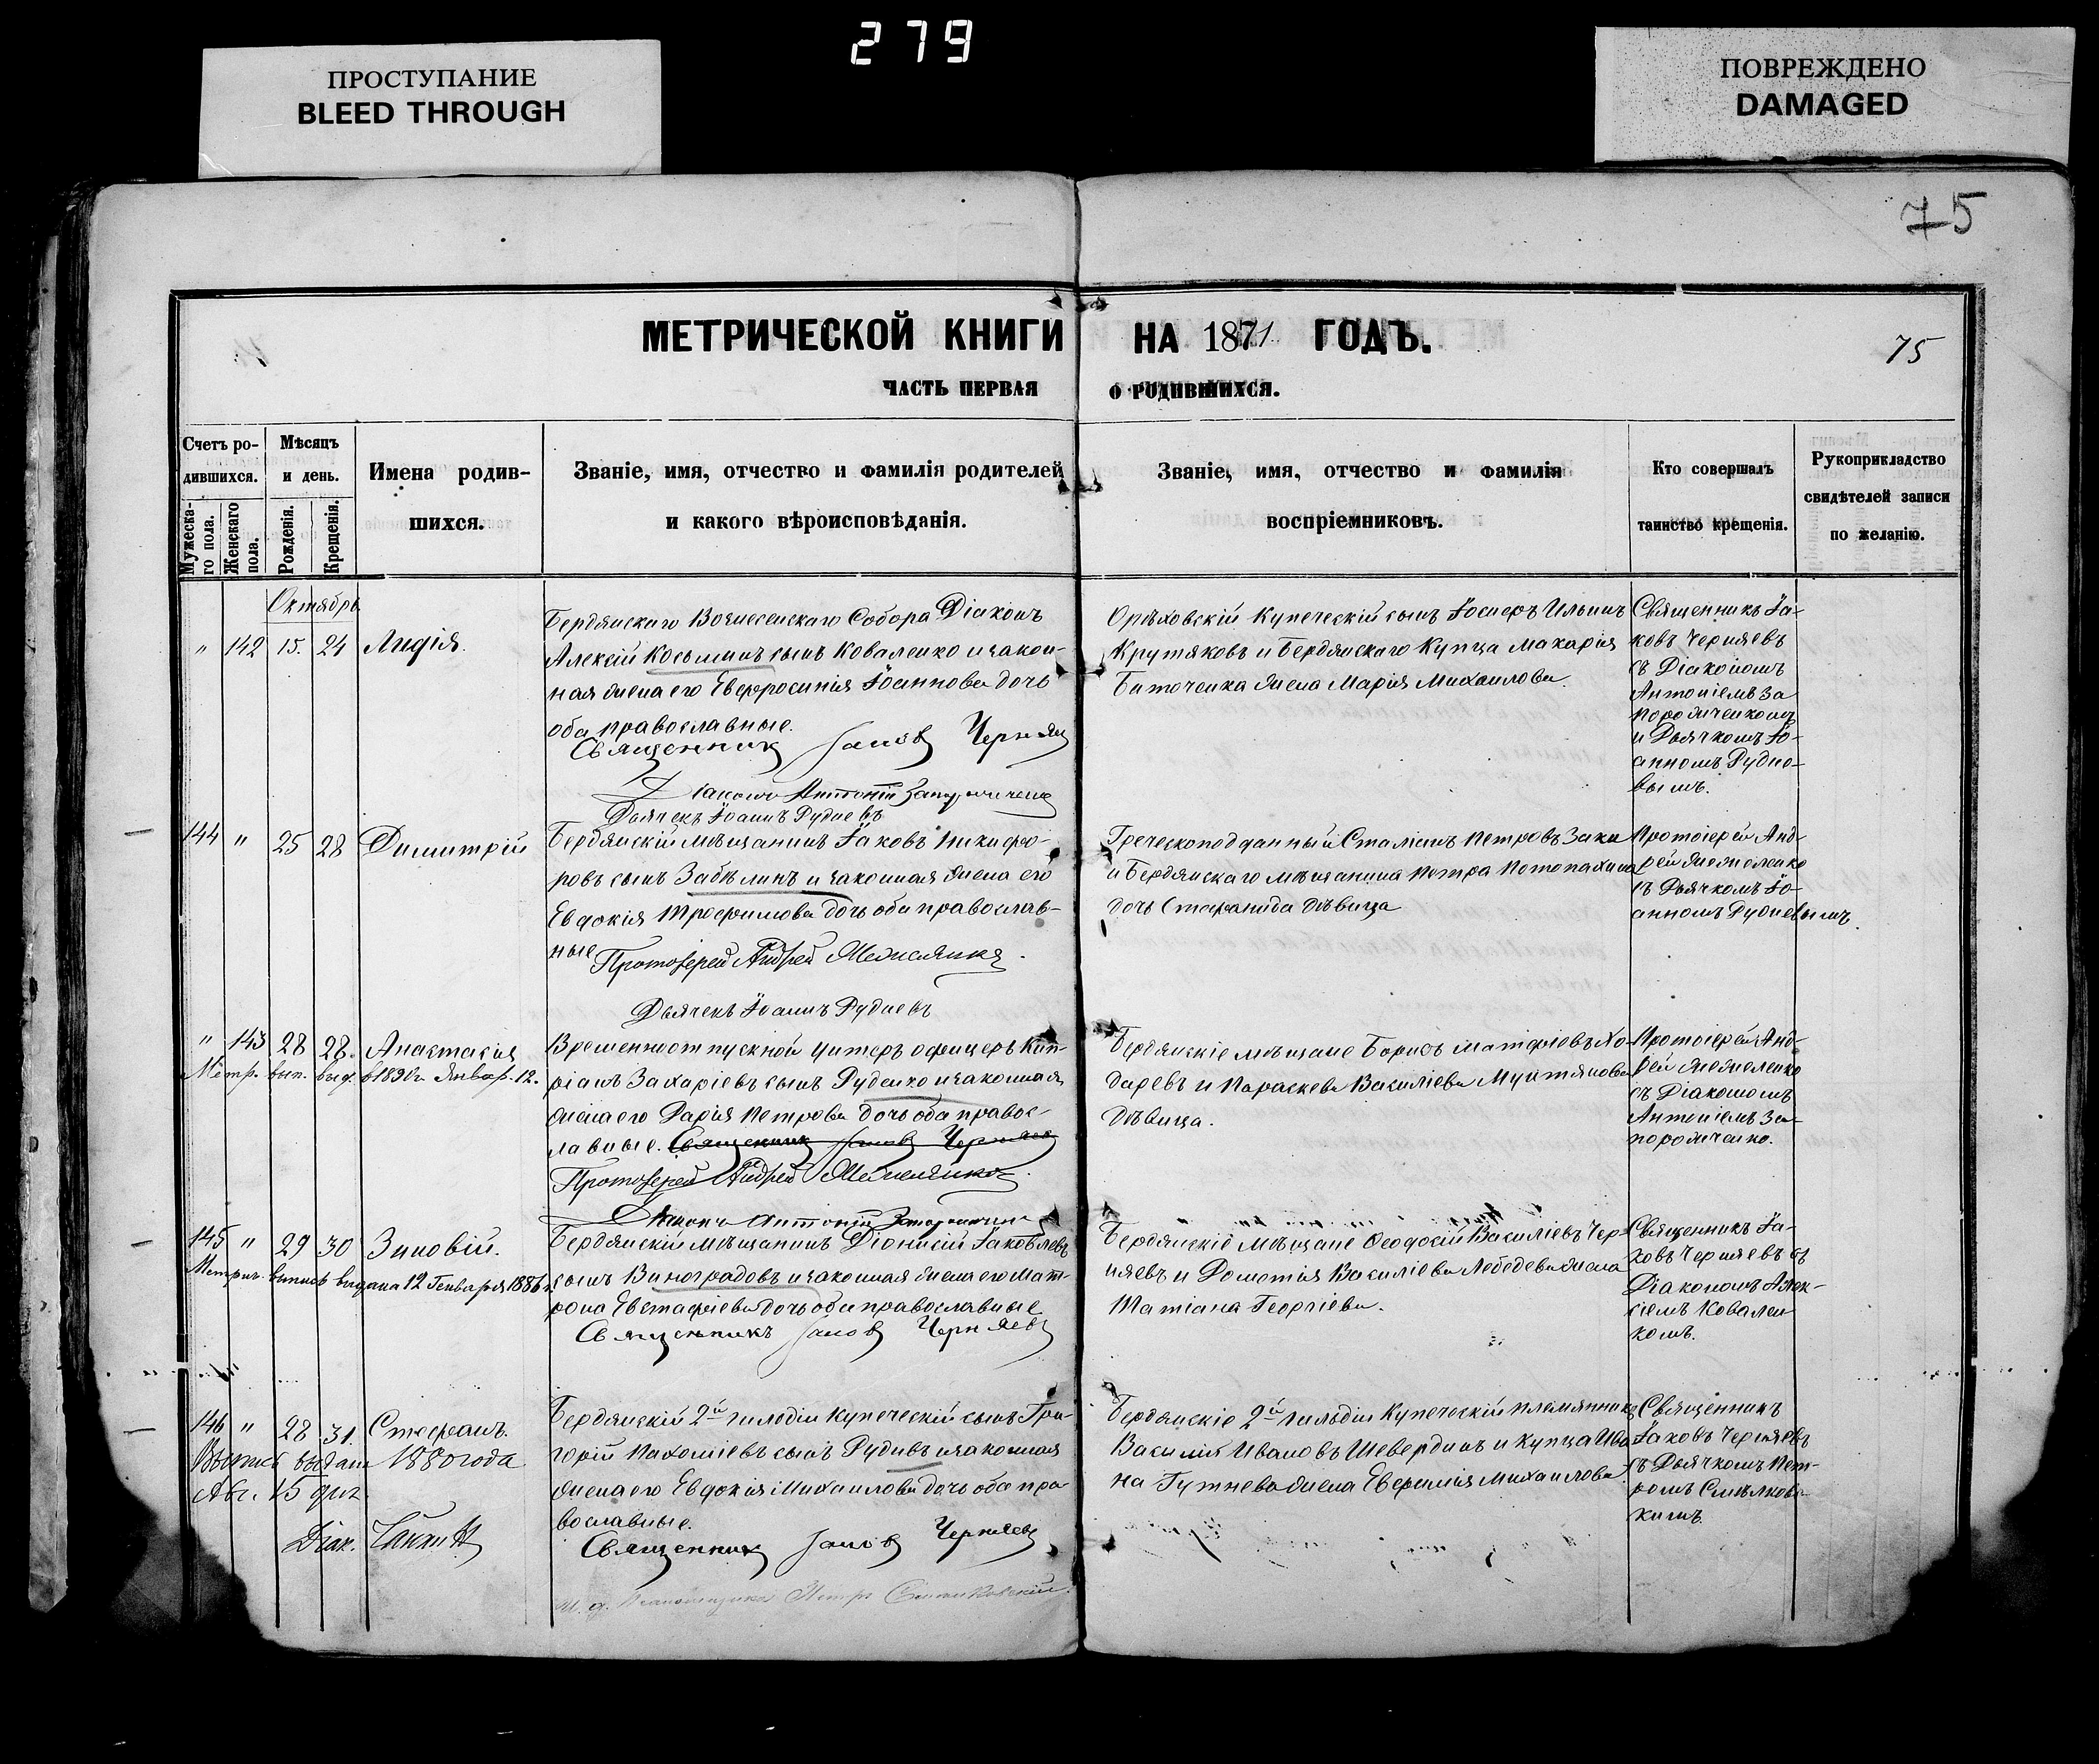 279
ПРОСТУПАНИЕ
BLEED THROUGH
ПОВРЕЖДЕНО
DAMAGED
75
МЕТРИЧЕСКОЙ КНИГИ НА 1871 ГОДЪ.
75
ЧАСТЬ ПЕРВАЯ О РОДИВШИХСЯ.
Счетъ ро-
дившихся.
Мужеска-
го пола.
Женскаго
пола.
Мѣсяцъ
и день.
Рожденія.
Крещенія.
Имена родив-
шихся.
Званіе, имя, отчество и фамилія родителей
и какого вѣроисповѣданія.
Званіе, имя, отчество и фамилія
воспріемниковъ.
Кто совершалъ
таинство крещенія.
Рукоприкладство
свидѣтелей записи
по желанію.
Октябрь
" 142 15. 24 Лидія.
Бердянскаго Вознесенскаго Собора Діаконъ
Алексій Косьминъ сынъ Коваленко и закон-
ная жена его Евфросинія Іоаннова дочь
оба православные.
Священникъ Іаковъ Черняев
Діаконъ Антоній Запорожченко
Дьячекъ Іоаннъ Рудневъ
Орѣховскій Купеческій сынъ Іосифъ Ильинъ
Крутяковъ и Бердянскаго Купца Макарія
жена Марія Михаилова.
Священникъ Іа-
ковъ Черняевъ
съ Діакономъ
Антоніемъ За
порожченкомъ
и Дьячкомъ Іо-
анномъ Рудне-
вымъ.
144 " 25 28 Димитрій
Бердянскій мѣщанинъ Іаковъ Никифо-
ровъ сынъ Забѣлинъ и законная жена его
Евдокія Трофимова дочь оба православ-
ные
Протоіерей Андрей
Дьячекъ Іоаннъ Рудневъ
Греческоподданный Петровъ
и Бердянскаго мѣщанина Петра
дочь Стефанида дѣвица
Протоіерей Анд-
рей
съ Дьячкомъ Іо-
анномъ Рудневымъ.
" 143 28 28. Анастасія
Метр. вып. выд. в 189 г. Январ. 12.
Временноотпускной унтеръ офицеръ Кип-
ріанъ Захаріевъ сынъ Руденко и законная
жена его Дарія Петрова дочь оба правос-
лавные. Священникъ Іаковъ Черняевъ
Протоіерей Андрей
Діаконъ Антоній Запорожченко
Бердянскіе мѣщане Борисъ Матфіевъ Хо-
даревъ и Параскева Василіева
дѣвица.
Протоіерей Анд-
рей
съ Діакономъ
Антоніемъ За-
порожченко.
145 " 29 30 Зиновій.
Метрич. выпись выдана 12 Генваря 1886 г.
Бердянскій мѣщанинъ Діонисій Іаковлевъ
сынъ Виноградовъ и законная жена его Мат-
рона Евстафіева дочь оба православные
Священникъ Іаковъ Черняевъ
Бердянскіе Мѣщане Ѳеодосій Василіевъ Чер-
няевъ и Василіева Лебедева жена
Татіана Георгіева.
Священникъ Іа-
ковъ Черняевъ съ
Діакономъ Алек-
сіемъ Ковален
комъ.
146 " 28 31. Стефанъ.
Выпись выдана 1880 года
Авг. 15 дня
Діак.
Бердянскій 2й гильдіи купеческій сынъ Гри-
горій Пахоміевъ сынъ Рудивъ и законная
жена его Евдокія Михаилова дочь оба пра
вославные.
Священникъ Іаковъ Черняевъ
и. д. Псаломщика Петръ
Бердянскіе 2й гильдіи Купеческій племянникъ
Василій Ивановъ Шевердинъ и купца Ива
на Гутнева жена Евфимія Михаилова
Священникъ
Іаковъ Черняевъ
съ Дьячкомъ Пет-
ромъ